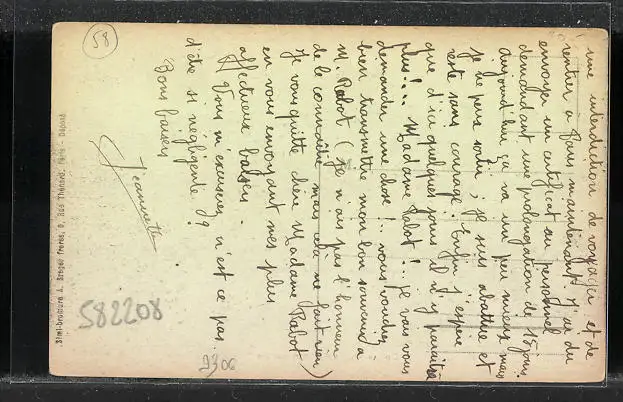 une interdiction de voyager et de
rentrer à Paris maintenant. J'ai du
envoyer un certificat au personnel
demandant une prolongation de 15 jours.
Aujourd'hui ça va un peu mieux mais
je ne peux sortir, je suis abattue et
reste sans courage. Enfin j'espère
que d'ici quelques jours il n'y paraîtra
plus!... Madame Rabot!.. je vais vous
demander une chose!.. vous voudrez
bien transmettre mon bon souvenir à
M. Rabot (je n'ais pas l'honneur
de le connaître mais cela ne fait rien)
Je vous quitte chère Madame Rabot
en vous envoyant mes plus
affectueux baisers.
Vous m'excuserez n'est ce pas
d'être si négligente
Bons baisers
Jeannette
58
582208
9306
Simili-bromure A. Breger frères, 9, Rue Thénard, Paris - Déposé